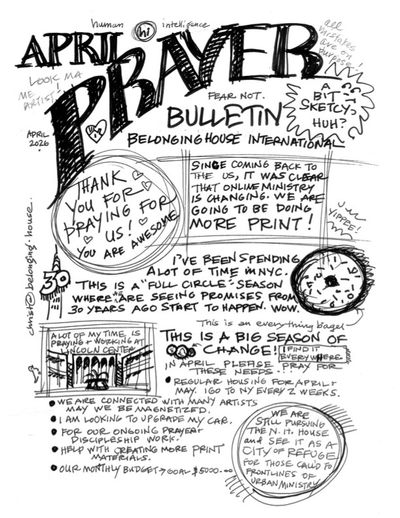 human hi intelligence
APRIL
PRAYER
all mistakes are on purpose!
LOOK MA
ME ARTIST!
FEAR NOT.
A BIT SKETCHY, HUH?
BULLETIN
APRIL 2026
BELONGING HOUSE INTERNATIONAL
THANK
YOU FOR
PRAYING FOR
US!
YOU ARE AWESOME
SINCE COMING BACK TO
THE US, IT WAS CLEAR
THAT ONLINE MINISTRY
IS CHANGING. WE ARE
GOING TO BE DOING
MORE PRINT!
YIPPEE!
I'VE BEEN SPENDING
A LOT OF TIME IN NYC.
30
THIS IS A "FULL CIRCLE" SEASON
WHERE WE ARE SEEING PROMISES FROM
30 YEARS AGO START TO HAPPEN. WOW.
This is an everything bagel
christ@belonging.house
A LOT OF MY TIME IS
PRAYING + WORKING AT
LINCOLN CENTER
THIS IS A BIG SEASON OF
CHANGE!
I FIND IT
EVERYWHERE
IN APRIL PLEASE PRAY FOR
THESE NEEDS:
• REGULAR HOUSING FOR APRIL +
MAY. I GO TO NY EVERY 2 WEEKS.
• WE ARE CONNECTED WITH MANY ARTISTS
MAY WE BE MAGNETIZED.
• I AM LOOKING TO UPGRADE MY CAR.
• FOR OUR ONGOING PRAYER +
DISCIPLESHIP WORK.
• HELP WITH CREATING MORE PRINT
MATERIALS.
• OUR MONTHLY BUDGET → GOAL $5000.00
WE ARE
STILL PURSUING
THE N.IT. HOUSE
and SEE IT AS A
CITY OF REFUGE
FOR THOSE CALLED TO
FRONTLINES OF
URBAN MINISTRY